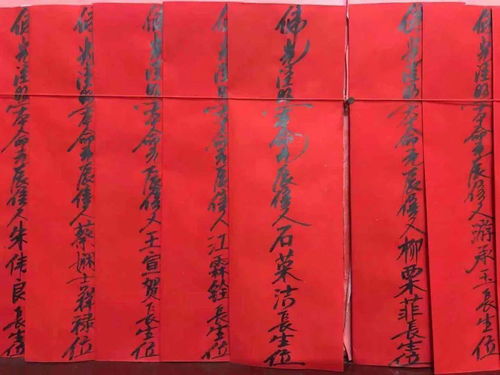 佛光注照本命元辰信人承玉長生位
佛光注照本命元辰信人柳栗菲長生位
佛光注照本命元辰信人石葉洁長生位
佛光注照本命元辰信人江霖銓長生位
佛光注照本命元辰信人王宣賀長生位
佛光注照本命元辰信人蔡祥禄位
佛光注照本命元辰信人朱良長生位